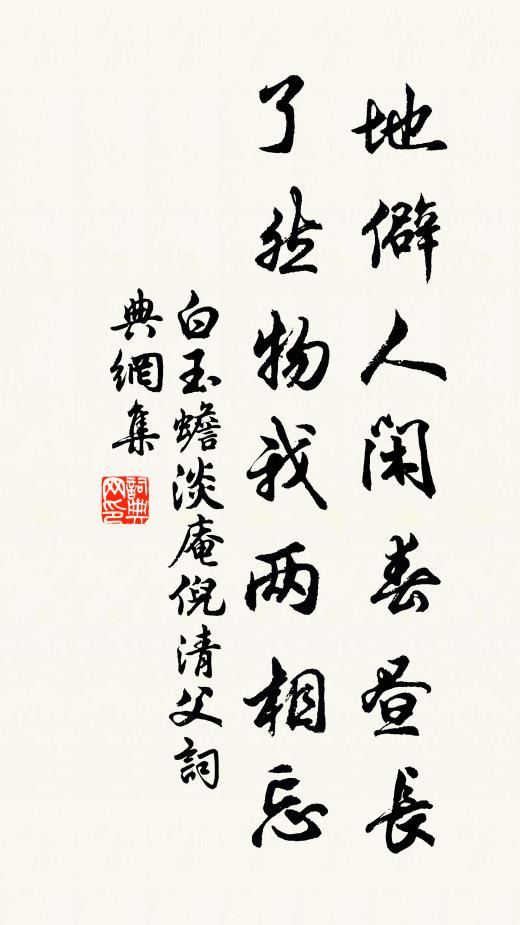 地僻人闲春昼長
了然物我两相忘
白玉蟾淡庵倪清父詞
典網集
詞典网印